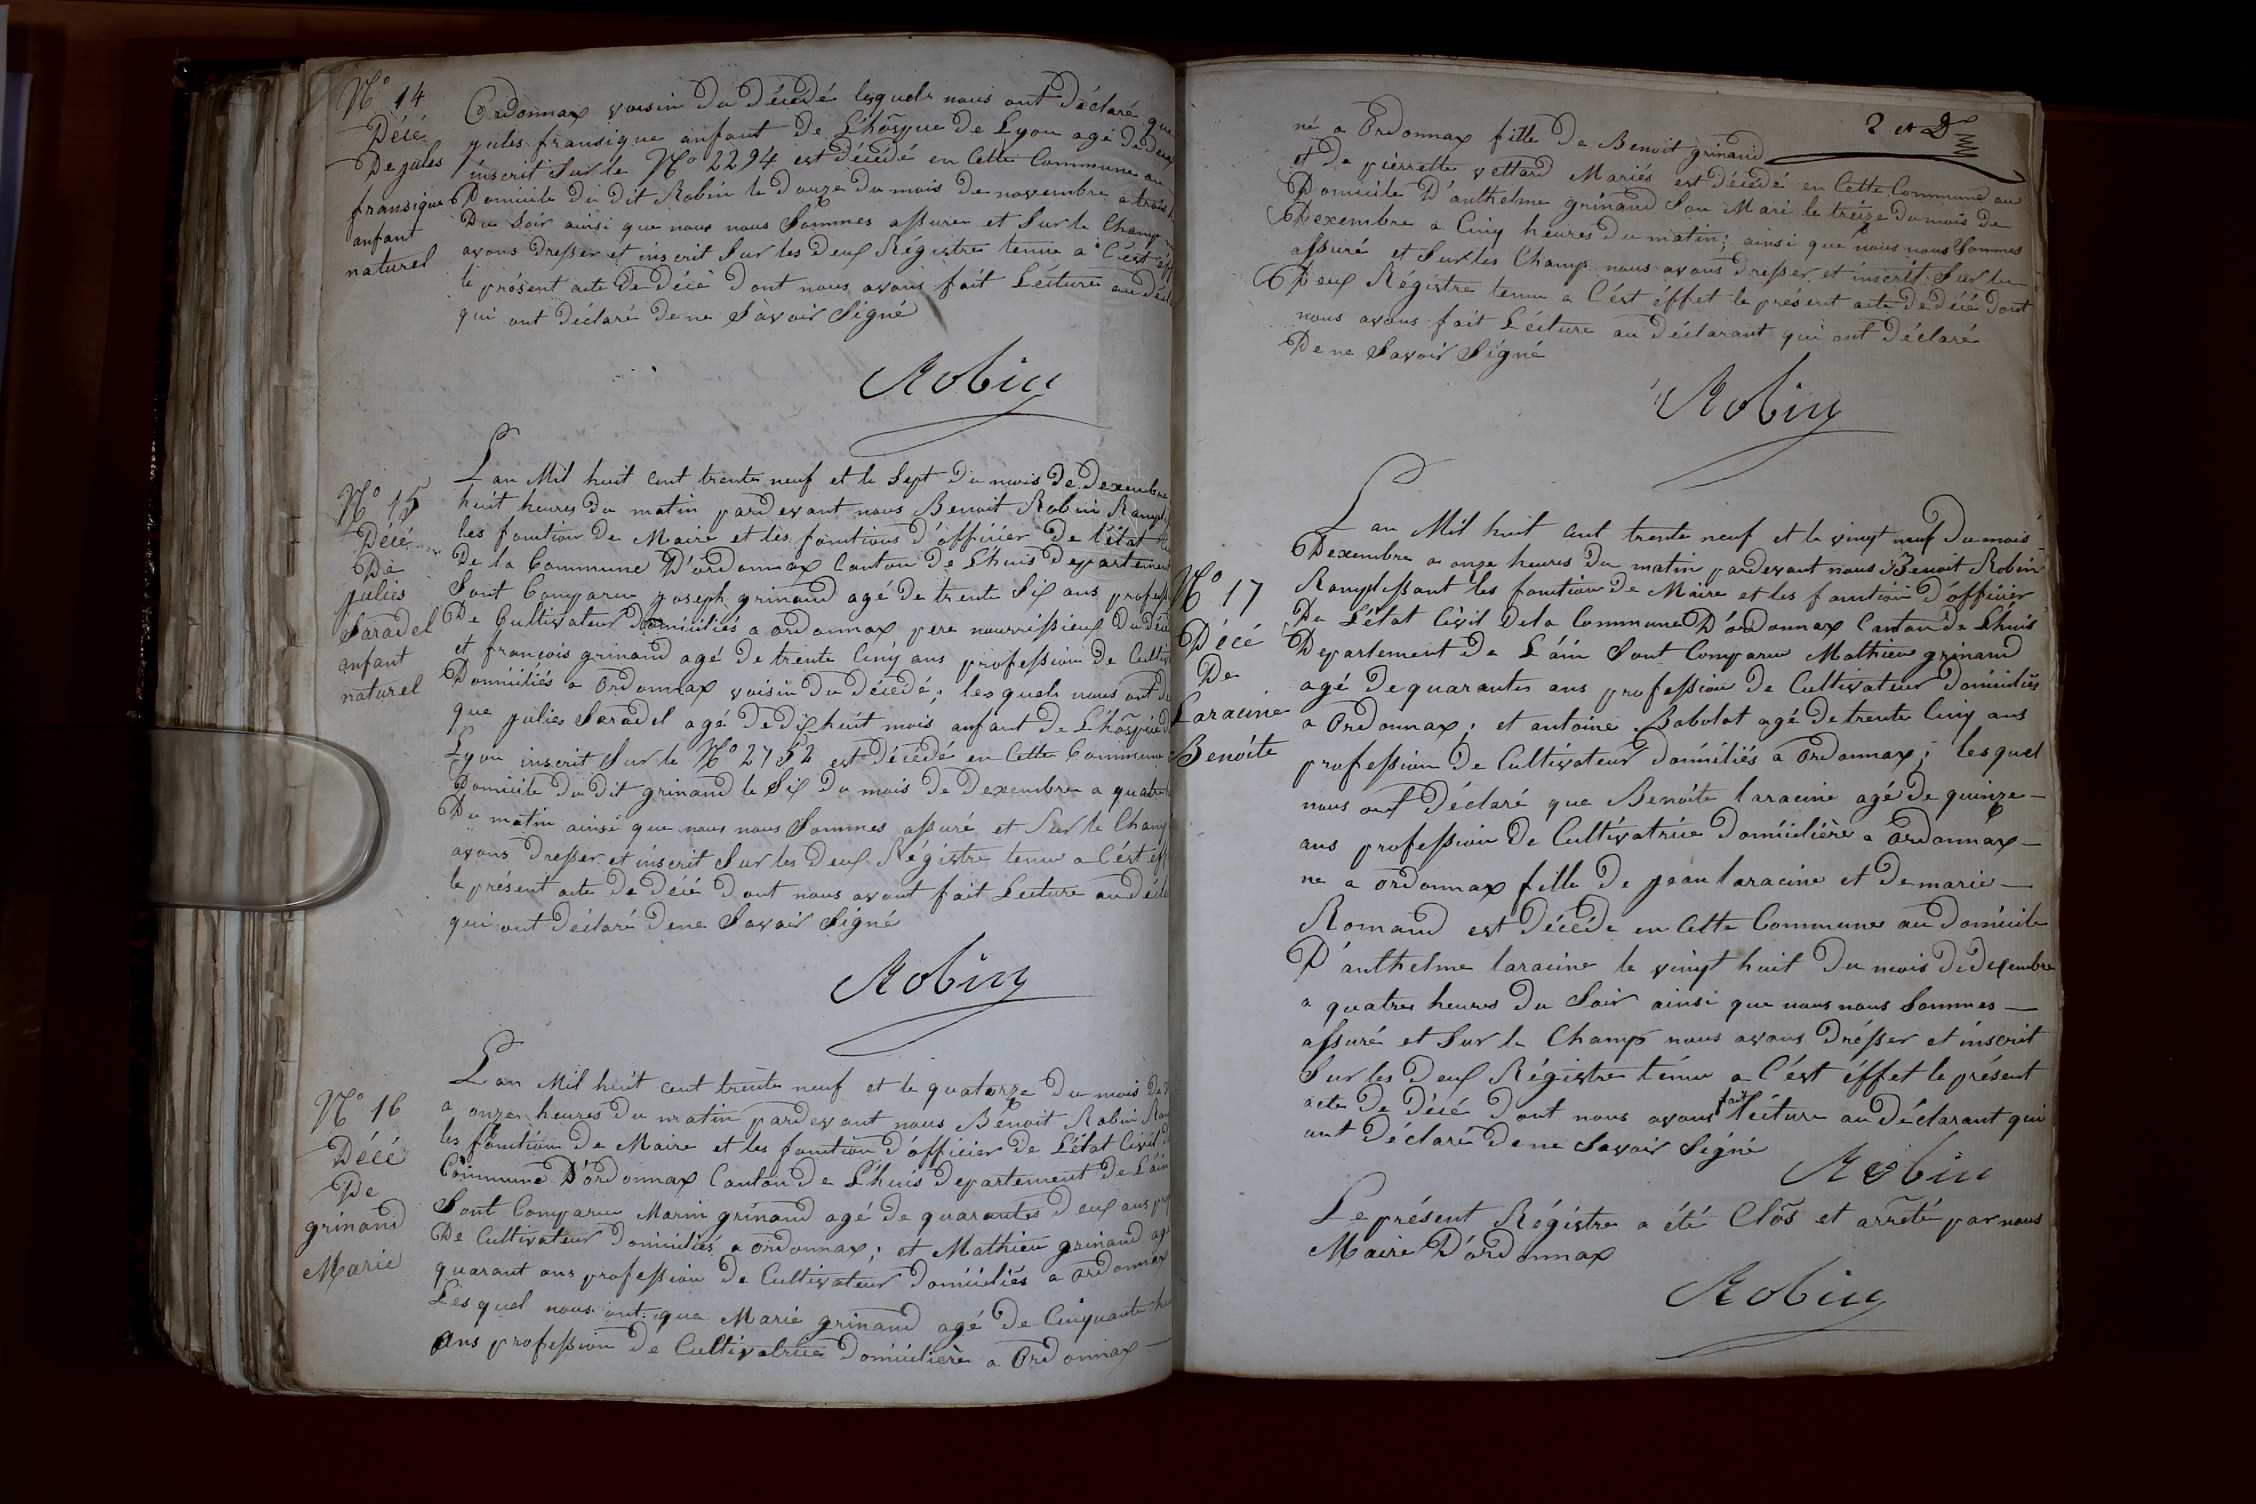 N° 14
Décé
De jules
fransique
anfant
naturel
Ordonnax voisin du Décédé lesquels nous ont Déclaré que
jules fransique anfant de L'hôspice de Lyon agé de deux
inscrit Sur le N° 2294 est Décédé en Cette Commune au
Domicile du dit Robin le Douze du mois de novembre a trois
Du Soir ainsi que nous nous Sommes assurer et Sur le Champ
avons Dresser et inscrit Sur les Deux Régistre tenue a C'est
le présent acte De Décé Dont nous avons fait Lécture au
qui ont Déclaré De ne Savoir Signé
Robin
N° 15
Décé
De
julies
Saradel
anfant
naturel
L'an Mil huit Cent trente neuf et le Sept Du mois De Dexembre
huit heures du matin pardevant nous Benoit Robin
les fonction De Maire et les fonctions D'officier De l'état
De la Commune D'ordonnax Canton De L'huis Departement
Sont Comparu joseph grinand agé De trente Six ans
De Cultivateur Domiciliés a ordonnax pere nourrissieux Du
et françois grinand agé De trente Cinq ans profession De
Domiciliés a Ordonnax voisin Du Décédé; lesquels nous ont
que julies Saradel agé De Dix huit mois anfant De L'hôspice
Lyon inscrit Sur le N° 2752 est Décédé en Cette Commune
Domicile Du Dit grinand le Six Du mois De Dexembre a quatre
Du matin ainsi que nous nous Sommes assuré et Sur le Champ
avons Dresser et inscrit Sur les Deux Régistre tenue a C'ést
le présent acte De Décé Dont nous avont fait Lecture au
qui ont Déclaré De ne Savoir Signé
Robin
N° 16
Décé
De
grinand
Marie
L'an Mil huit cent trente neuf et le quatorze Du mois De
a onze heures Du matin pardevant nous Benoit Robin
les fonction De Maire et les fonction D'officier De L'état Civil
Commune D'ordonnax Canton De L'huis Departement De L'ain
Sont Comparu Marin grinand agé De quarantes Deux ans
De Cultivateur Domiciliés a ordonnax; et Mathieu grinand
quarant ans profession De Cultivateur Domiciliés a Ordonnax
Les quel nous ont que Marie grinand agé De Cinquante
ans profession De Cultivatrice Domicilière a Ordonnax
né a Ordonnax fille De Benoit grinand
et De pierrette vettard Mariés est Décédé en Cette Commune au
Domicile D'anthelme grinand Son Mari le treize Du mois De
Dexembre a Cinq heures Du matin; ainsi que nous nous Sommes
assuré et Sur les Champ nous avons Dresser et inscrit Sur les
Deux Régistre tenue a C'ést éffet le présent acte De Décé Dont
nous avons fait Lécture au Déclarant qui ont Déclaré
De ne Savoir Signé
Robin
N° 17
Décé
De
Laracine
Benoite
L'an Mil huit cent trente neuf et le vingt neuf Du mois
Dexembre a onze heures Du matin pardevant nous Benoit Robin
Ramplissant les fonction De Maire et les fonction D'officier
De L'état Civil De la Commune D'ordonnax Canton De L'huis
Departement De L'ain Sont Comparu Mathieu grinand
agé De quarantes ans profession De Cultivateur Domiciliés
a Ordonnax; et antoine Babolat agé De trente Cinq ans
profession De Cultivateur Domiciliés a Ordonnax; lesquel
nous ont Déclaré que Benoite laracine agé De quinze
ans profession De Cultivatrice Domicilière a Ordonnax
ne a ordonnax fille De jean laracine et De marie
Romand est Décéde en Cette Communes au Domicile
D'anthelme laracine le vingt huit Du mois De Dexembre
a quatres heures Du Soir ainsi que nous nous Sommes
assuré et Sur le Champ nous avons Drésser et inscrit
Sur les Deux Régistre ténue a C'ést éffet le présent
acte De Décé Dont nous avons fait lécture au Déclarant qui
ont Déclaré De ne Savoir Signé
Robin
Le présent Régistre a été Clôs et arrêté par nous
Maire D'ordonnax
Robin